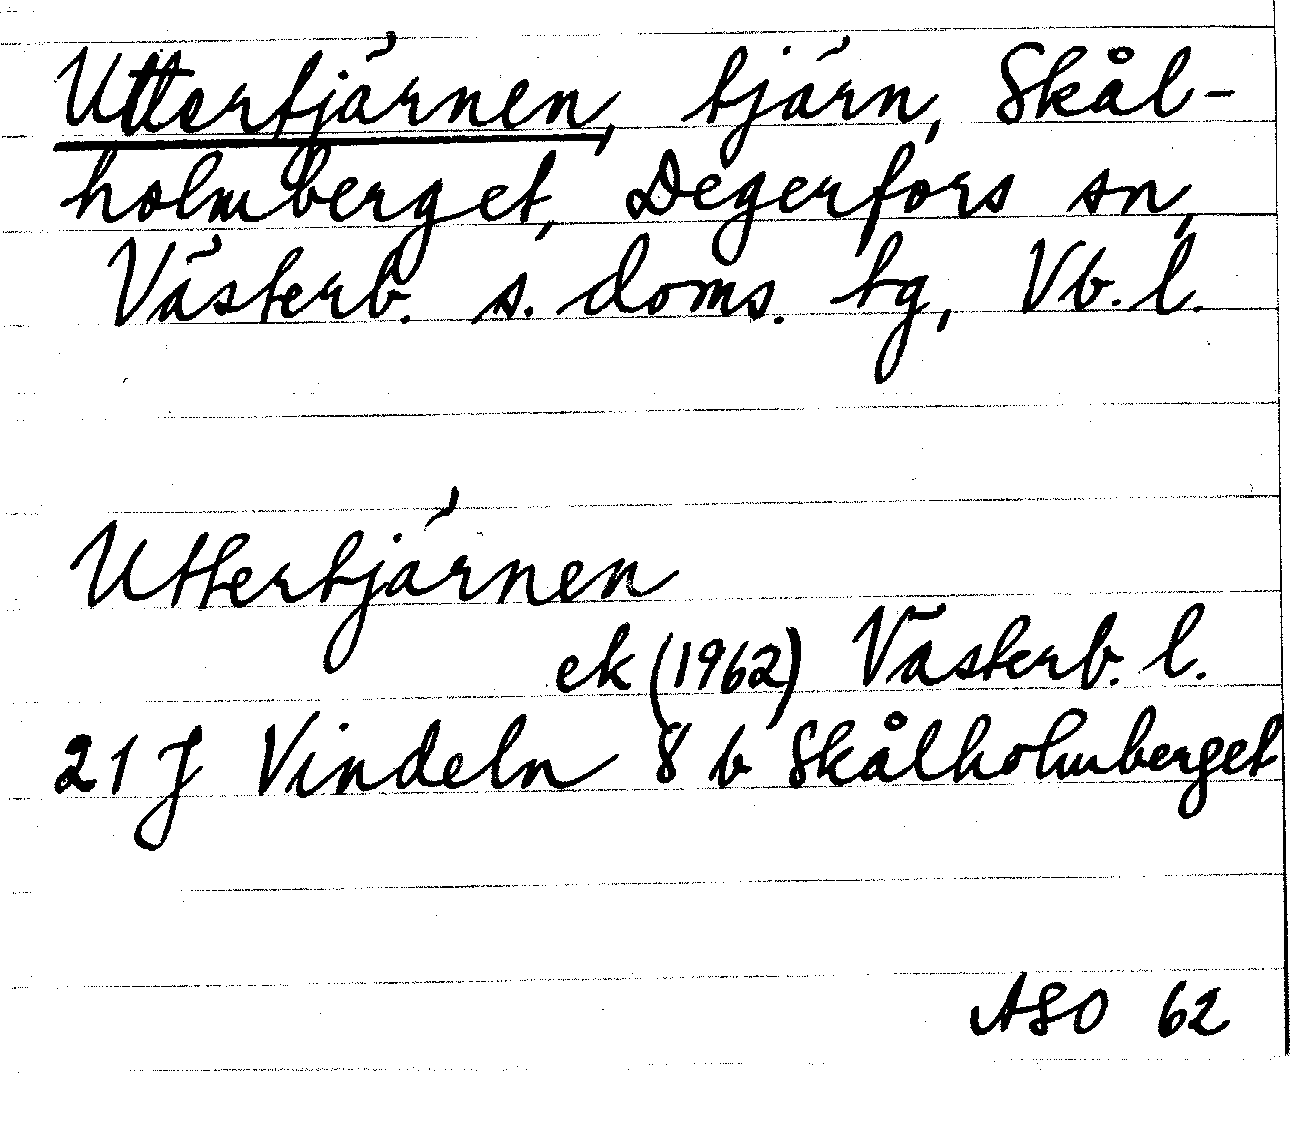 Uttertjärnen, tjärn, Skål-
holmberget, Degerfors sn,
Västerb. s. doms. tg, Vb. l.
Uttertjärnen
ek (1962) Västerb. l.
21 J Vindeln 8 b Skålholmberget
ASO 62